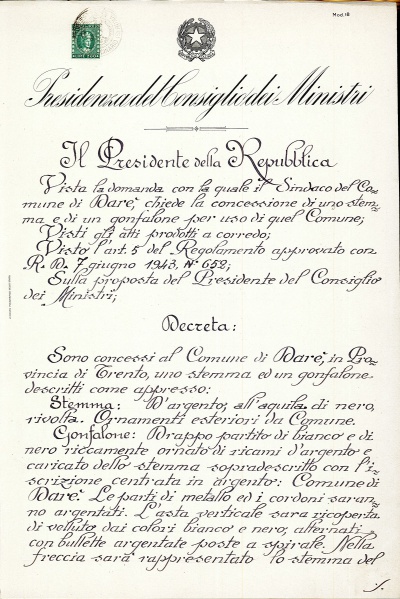 Mod. 18
Presidenza del Consiglio dei Ministri
Il Presidente della Repubblica
Vista la domanda con la quale il Sindaco del Co=
mune di Darè, chiede la concessione di uno stem=
ma e di un gonfalone per uso di quel Comune;
Visti gli atti prodotti a corredo;
Visto l'art. 5 del Regolamento approvato con
R. D. 7 giugno 1943, N° 652;
Sulla proposta del Presidente del Consiglio
dei Ministri;
Decreta:
Sono concessi al Comune di Darè, in Pro=
vincia di Trento, uno stemma ed un gonfalone
descritti come appresso:
Stemma: D'argento, all'aquila di nero,
rivolta. Ornamenti esteriori da Comune.
Gonfalone: Drappo partito di bianco e di
nero riccamente ornato di ricami d'argento e
caricato dello stemma sopradescritto con l'i=
scrizione centrata in argento: Comune di
Darè. Le parti di metallo ed i cordoni saran=
no argentati. L'asta verticale sarà ricoperta
di velluto dai colori bianco e nero, alternati
con bullette argentate poste a spirale. Nella
freccia sarà rappresentato lo stemma del
./.